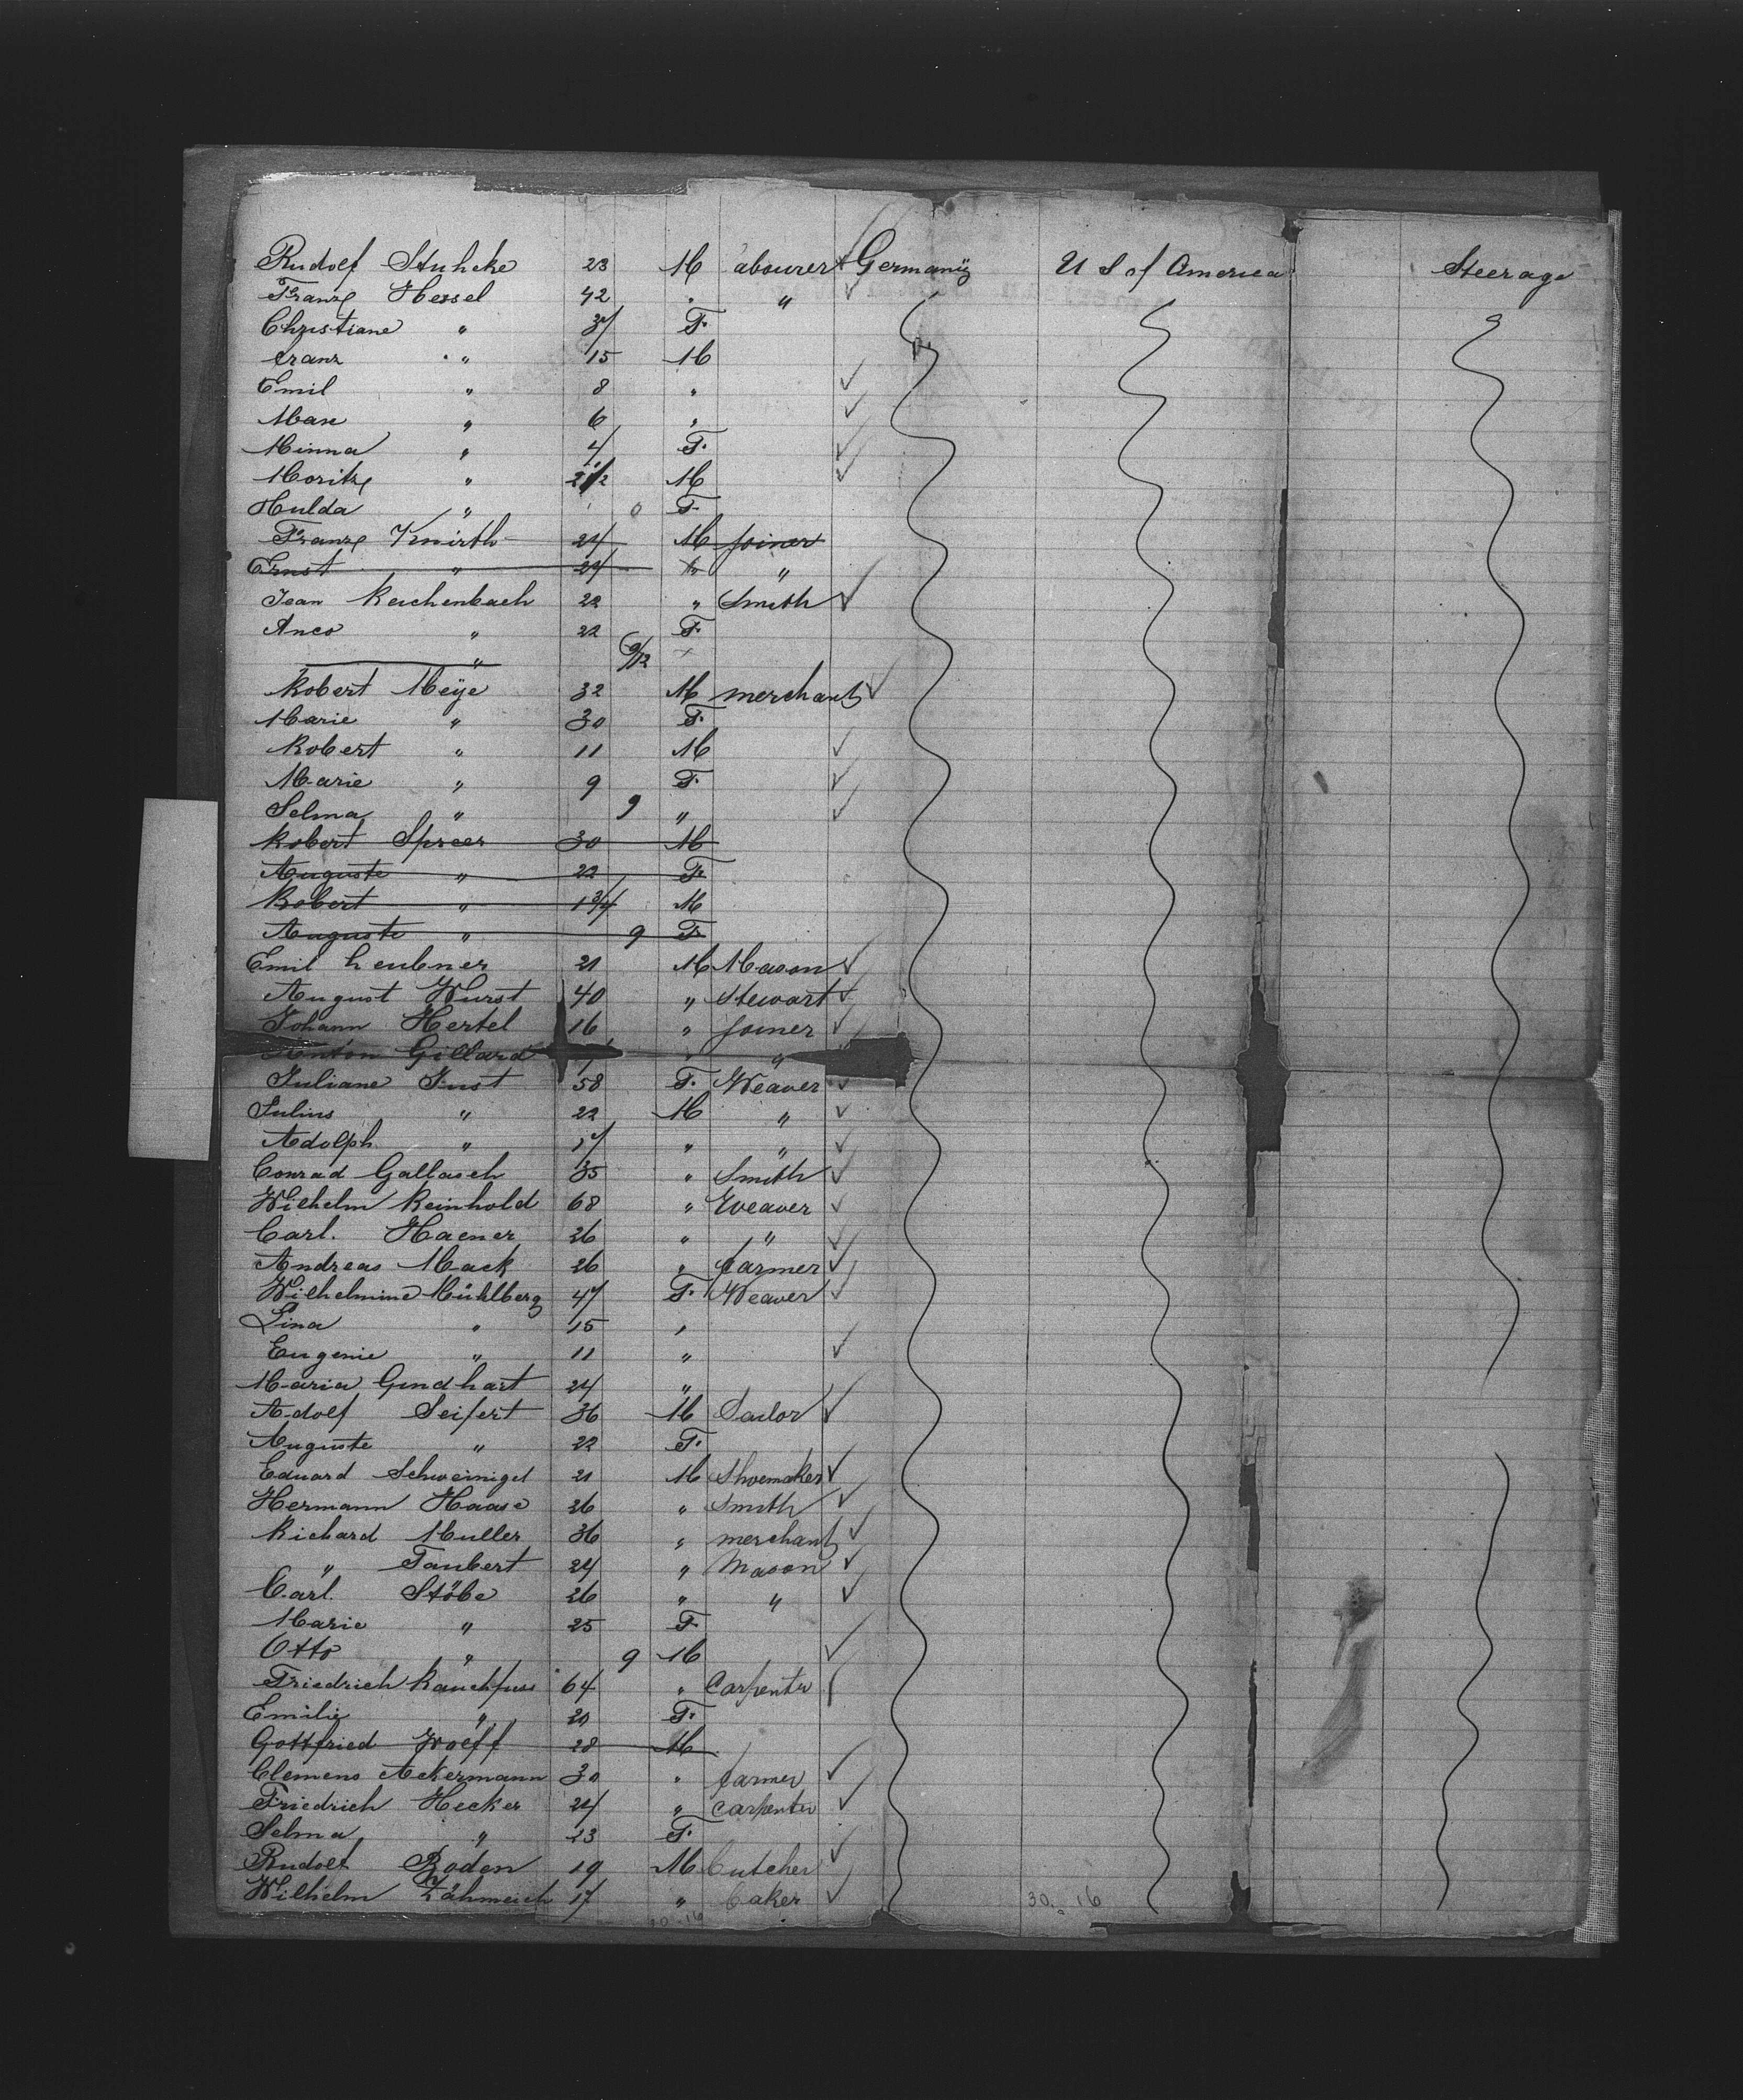 Rudolf Stuhcke 23 M abourer Germany U S of America Steerage
Franz Hessel 42 " "
Christiane " 37 F.
Franz " 15 M
Emil " 8 "
Max " 6 "
Minna " 4 F.
Moritz " 2 1/2 M
Hulda " F
Franz Knirth 24 M joiner
Ernst " 24 " "
Jean Reichenbach 22 " Smith
" 22 F.
" 9/12
Robert Meÿe 32 M merchant
Marie " 30 F.
Robert " 11 M
Marie " 9 F.
Selma " 9 "
Robert Spreer 30 M
Auguste " 22 F.
Robert " 1 3/4 M
Auguste " 9 F
Emil Leubner 21 M Mason
August Wurst 40 " Stewart
Johann Hertel 16 " joiner
Anton Gillard " "
Juliane Just 58 F. Weaver
Julius " 22 M "
Adolph " 17 " "
Conrad Gallasch 35 " Smith
Wilhelm Reinhold 68 " Weaver
Carl. Hacner 26 " "
Andreas Mack 26 " farmer
Wilhelmine Mühlberg 47 F. Weaver
Lina " 15 "
Eugenie " 11 "
Maria Gundhart 24 "
Adolf Seifert 36 M Sailor
Auguste " 22 F.
Eduard Schweinigel 21 M Shoemaker
Hermann Haase 26 " Smith
Richard Muller 36 " merchant
" Taubert 24 " Mason
Carl. Stöbe 26 " "
Marie " 25 F.
Otto " 9 M
Friedrich Rauchfuss 64 " Carpenter
Emilie " 20 F.
Gottfried Wolff 28 M
Clemens Ackermann 30 " farmer
Friedrich Hecker 24 " Carpenter
Selma " 23 F.
Rudolf Roden 19 M butcher
Wilhelm 17 " baker
30. 16 30. 16